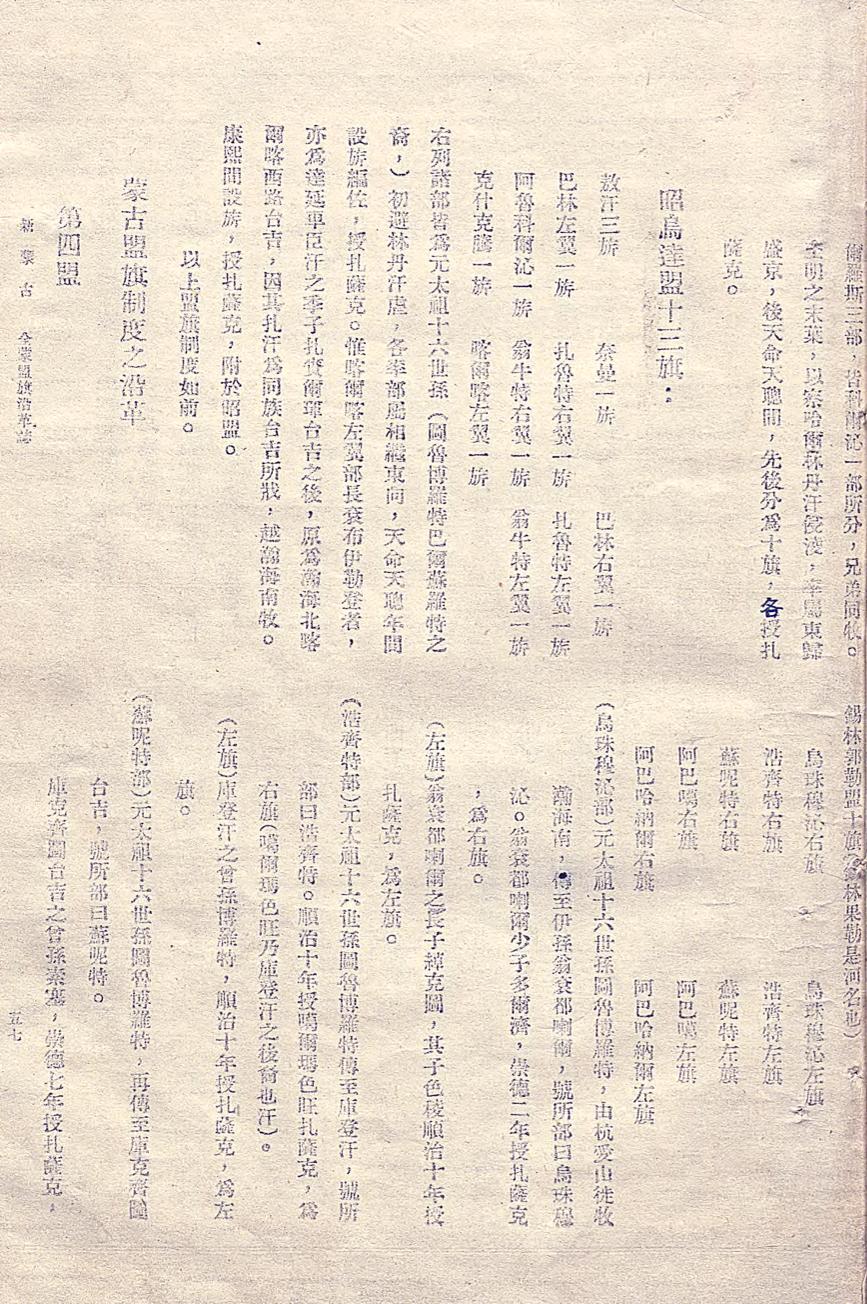 爾羅斯三部，皆科爾沁一部所分，兄弟同牧。
至明之末葉，以察哈爾林丹汗侵淩，率屬東歸
盛京，後天命天聰間，先後分為十旗，各授扎
薩克。
昭烏達盟十三旗：
敖汗三旂　奈曼一旂　巴林右翼一旂
巴林左翼一旂　扎魯特右翼一旂　扎魯特左翼一旂
阿魯科爾沁一旂　翁牛特右翼一旂　翁牛特左翼一旂
克什克騰一旂　喀爾喀左翼一旂
右列諸部皆為元太祖十六世孫（圖魯博羅特巴爾蘇羅特之
裔，）初避林丹汗虐，各率部屬相繼東向，天命天聰年間
設旂編佐，授扎薩克。惟喀爾喀左翼部長袞布伊勒登者，
亦為達延車臣汗之季子扎賚爾琿台吉之後，原為瀚海北喀
爾喀西路台吉，因其扎汗為同族台吉所戕，越瀚海南牧。
康熙間設旂，授扎薩克，附於昭盟。
以上盟旗制度如前。
蒙古盟旗制度之沿革
第四盟
新蒙古　全蒙盟旗沿革誌
錫林郭勒盟十旗（錫林果勒是河名也）
烏珠穆沁右旗　烏珠穆沁左旗
浩齊特右旗　浩齊特左旗
蘇呢特右旗　蘇呢特左旗
阿巴噶右旗　阿巴噶左旗
阿巴哈納爾右旗　阿巴哈納爾左旗
（烏珠穆沁部）元太祖十六世孫圖魯博羅特，由杭愛山徙牧
瀚海南，傳至伊孫翁袞都喇爾，號所部曰烏珠穆
沁。翁袞都喇爾少子多爾濟，崇德二年授扎薩克
，為右旗。
（左旗）翁袞都喇爾之長子綽克圖，其子色稜順治十年授
扎薩克，為左旗。
（浩齊特部）元太祖十六世孫圖魯博羅特傳至庫登汗，號所
部曰浩齊特。順治十年授噶爾瑪色旺扎薩克，為
右旗（噶爾瑪色旺乃庫登汗之後裔也汗）。
（左旗）庫登汗之曾孫博羅特，順治十年授扎薩克，為左
旗。
（蘇呢特部）元太祖十六世孫圖魯博羅特，再傳至庫克齊圖
台吉，號所部曰蘇呢特。
庫克齊圖台吉之曾孫素塞，崇德七年授扎薩克，
五七